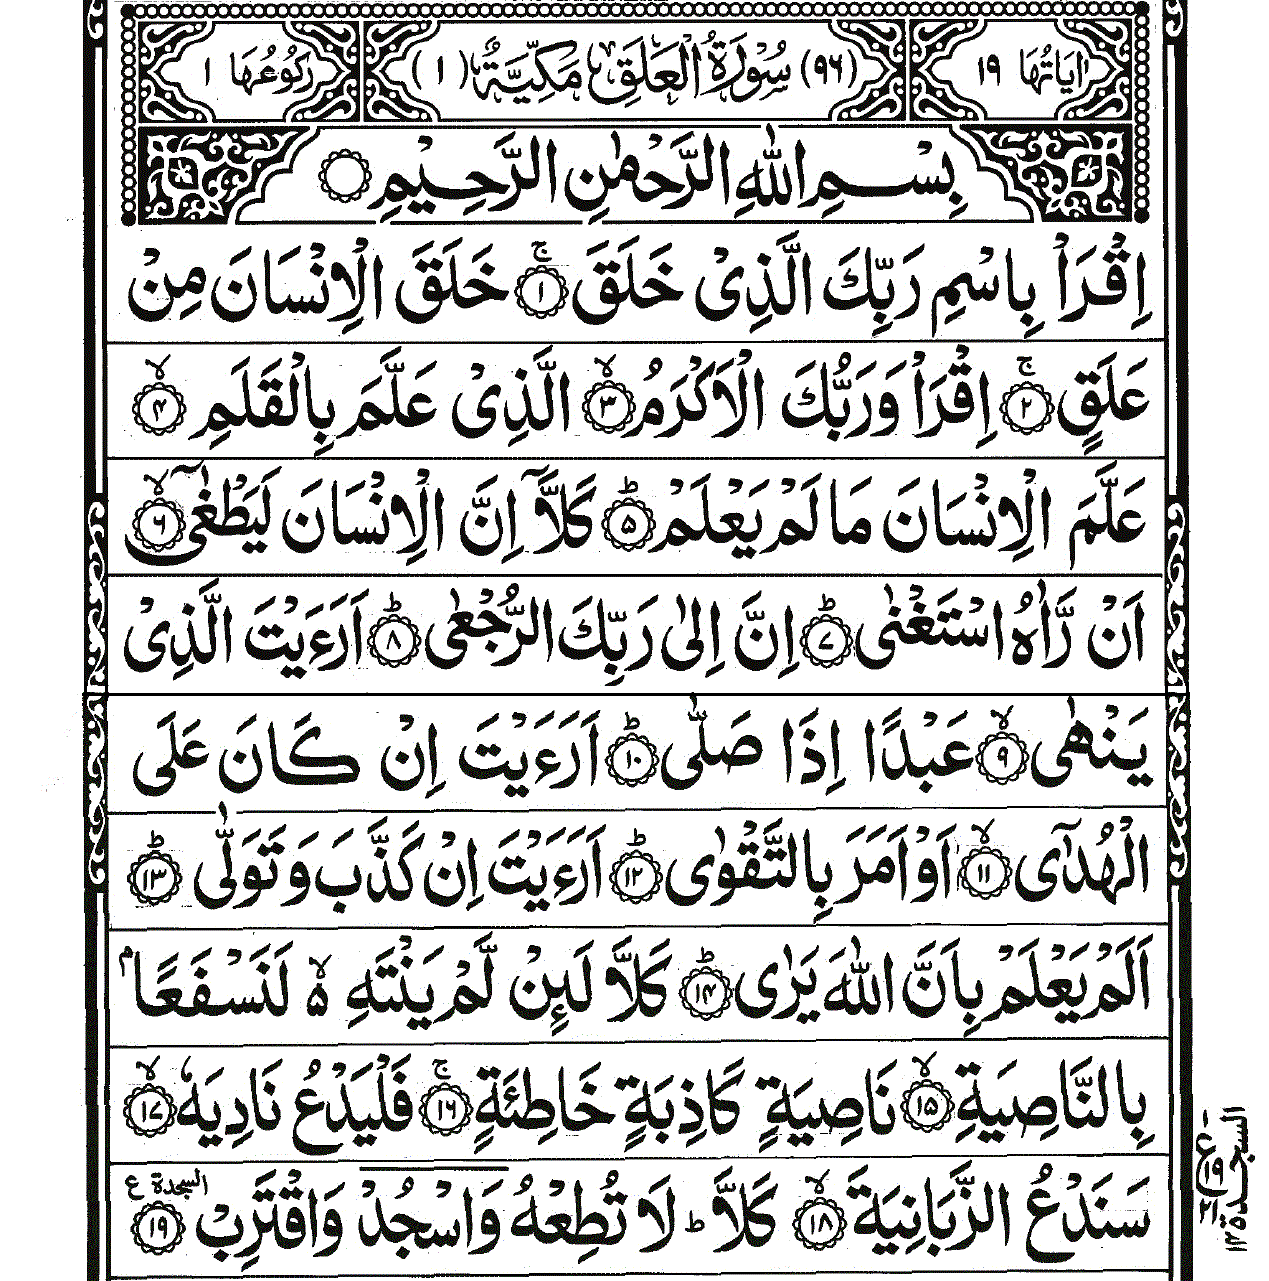 اٰيَاتُهَا ١٩ (٩٦) سُوْرَةُ الْعَلَقِ مَكِّيَّةٌ (١) رُكُوْعُهَا ١
بِسْمِ اللّٰهِ الرَّحْمٰنِ الرَّحِيْمِ
اِقْرَاْ بِاسْمِ رَبِّكَ الَّذِیْ خَلَقَ ۚ﴿۱﴾ خَلَقَ الْاِنْسَانَ مِنْ
عَلَقٍ ۚ﴿۲﴾ اِقْرَاْ وَرَبُّكَ الْاَكْرَمُ ۙ﴿۳﴾ الَّذِیْ عَلَّمَ بِالْقَلَمِ ۙ﴿۴﴾
عَلَّمَ الْاِنْسَانَ مَا لَمْ يَعْلَمْ ؕ﴿۵﴾ كَلَّاۤ اِنَّ الْاِنْسَانَ لَيَطْغٰۤی ۙ﴿۶﴾
اَنْ رَّاٰهُ اسْتَغْنٰی ؕ﴿۷﴾ اِنَّ اِلٰی رَبِّكَ الرُّجْعٰی ؕ﴿۸﴾ اَرَءَيْتَ الَّذِیْ
يَنْهٰی ۙ﴿۹﴾ عَبْدًا اِذَا صَلّٰی ؕ﴿۱۰﴾ اَرَءَيْتَ اِنْ كَانَ عَلَی
الْهُدٰۤی ۙ﴿۱۱﴾ اَوْ اَمَرَ بِالتَّقْوٰی ؕ﴿۱۲﴾ اَرَءَيْتَ اِنْ كَذَّبَ وَتَوَلّٰی ؕ﴿۱۳﴾
اَلَمْ يَعْلَمْ بِاَنَّ اللّٰهَ يَرٰی ؕ﴿۱۴﴾ كَلَّا لَئِنْ لَّمْ يَنْتَهِ ۙ۬ لَنَسْفَعًۢا
بِالنَّاصِيَةِ ۙ﴿۱۵﴾ نَاصِيَةٍ كَاذِبَةٍ خَاطِئَةٍ ۚ﴿۱۶﴾ فَلْيَدْعُ نَادِيَهٗ ۙ﴿۱۷﴾
سَنَدْعُ الزَّبَانِيَةَ ۙ﴿۱۸﴾ كَلَّا ؕ لَا تُطِعْهُ وَاسْجُدْ وَاقْتَرِبْ ﴿۱۹﴾ السجدة ع
السجدة ١٤
ع
١٩
٢١